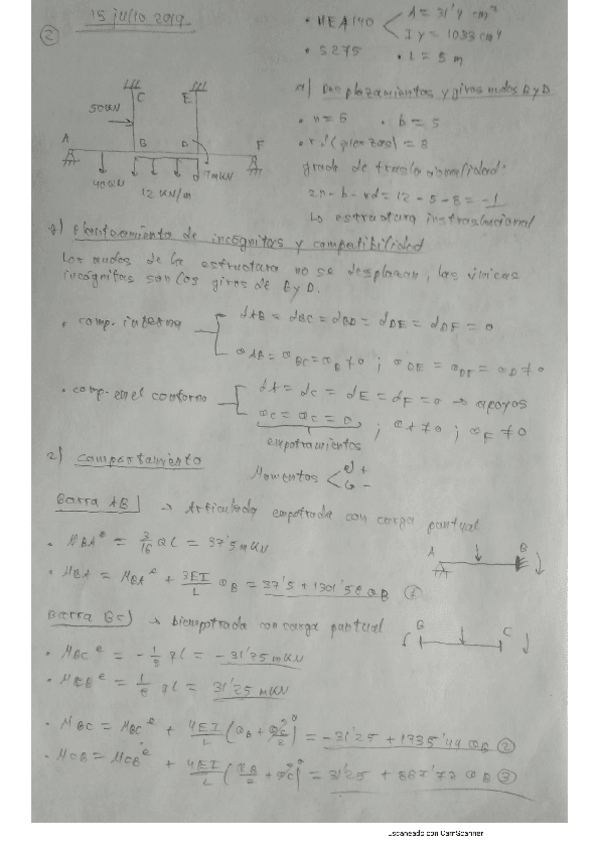 15 julio 2019
2
• HEA140
A = 31'4 cm²
Iy = 1033 cm⁴
• S275 • L = 5 m
C E
50kN
A B D F
40kN 12 kN/m 7mkN
a) Desplazamientos y giros nudos B y D
• n = 6 • b = 5
• rd = 8
grado de traslacionalidad:
2n - b - rd = 12 - 5 - 8 = -1
La estructura instraslacional
1) Planteamiento de incógnitas y compatibilidad
Los nudos de la estructura no se desplazan, las únicas
incógnitas son los giros de B y D.
• comp. interna
dAB = dBC = dBD = dDE = dDF = 0
θAB = θBC = θB ≠ 0 ; θDE = θDF = θD ≠ 0
• comp. en el contorno
dA = dC = dE = dF = 0 → apoyos
θC = θC = 0 ; θA ≠ 0 ; θF ≠ 0
empotramientos
2) Comportamiento
Momentos + -
Barra AB) → Articulada empotrada con carga puntual
• MBAᵉ = 3/16 QL = 37'5 mkN
A B
• MBA = MBAᵉ + 3EI/L θB = 37'5 + 1301'58 θB ①
Barra BC) → biempotrada con carga puntual
B C
• MBCᵉ = - 1/8 qL = - 31'25 mkN
• MCBᵉ = 1/8 qL = 31'25 mkN
• MBC = MBCᵉ + 4EI/L (θB + θC/2) = -31'25 + 1735'44 θB ②
• MCB = MCBᵉ + 4EI/L (θB/2 + θC) = 31'25 + 867'72 θB ③
Escaneado con CamScanner